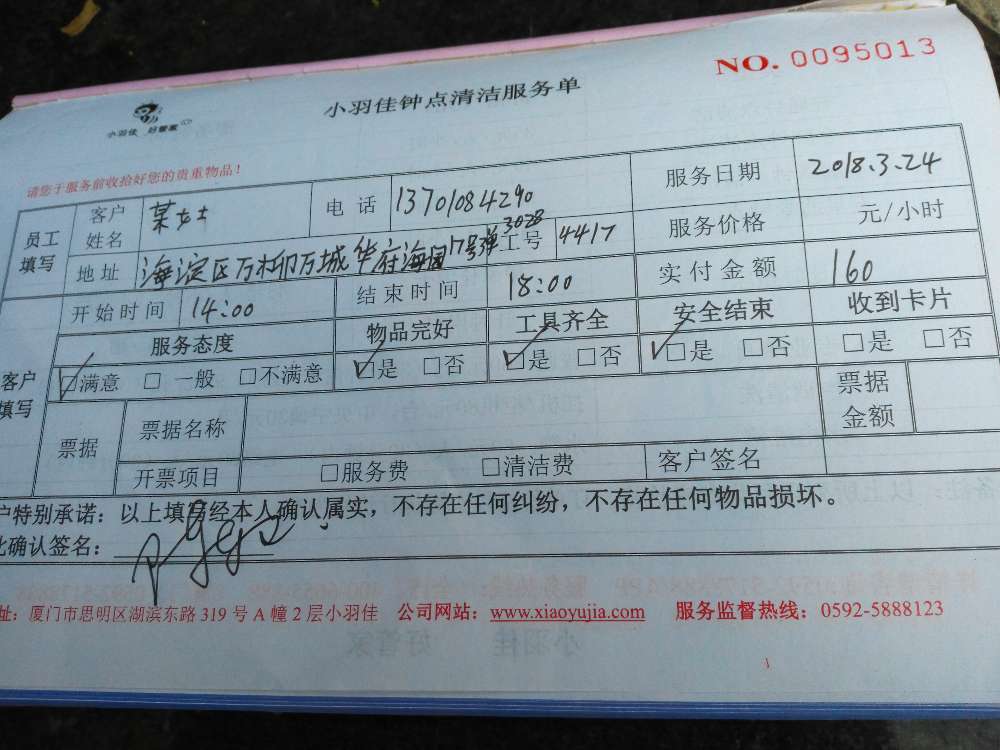 NO. 0095013
小羽佳 好管家
小羽佳钟点清洁服务单
请您于服务前收拾好您的贵重物品!
员工填写 客户姓名 某女士 电话 13701084290 服务日期 2018.3.24
地址 海淀区万柳万城华府海园7号弹3028 工号 4417 服务价格 元/小时
开始时间 14:00 结束时间 18:00 实付金额 160
客户填写 服务态度 物品完好 工具齐全 安全结束 收到卡片
□满意 □一般 □不满意 □是 □否 □是 □否 □是 □否 □是 □否
票据 票据名称 票据金额
开票项目 □服务费 □清洁费 客户签名
户特别承诺:以上填写经本人确认属实,不存在任何纠纷,不存在任何物品损坏。
此确认签名:
址:厦门市思明区湖滨东路 319 号 A 幢 2 层小羽佳 公司网站:www.xiaoyujia.com 服务监督热线:0592-5888123
1